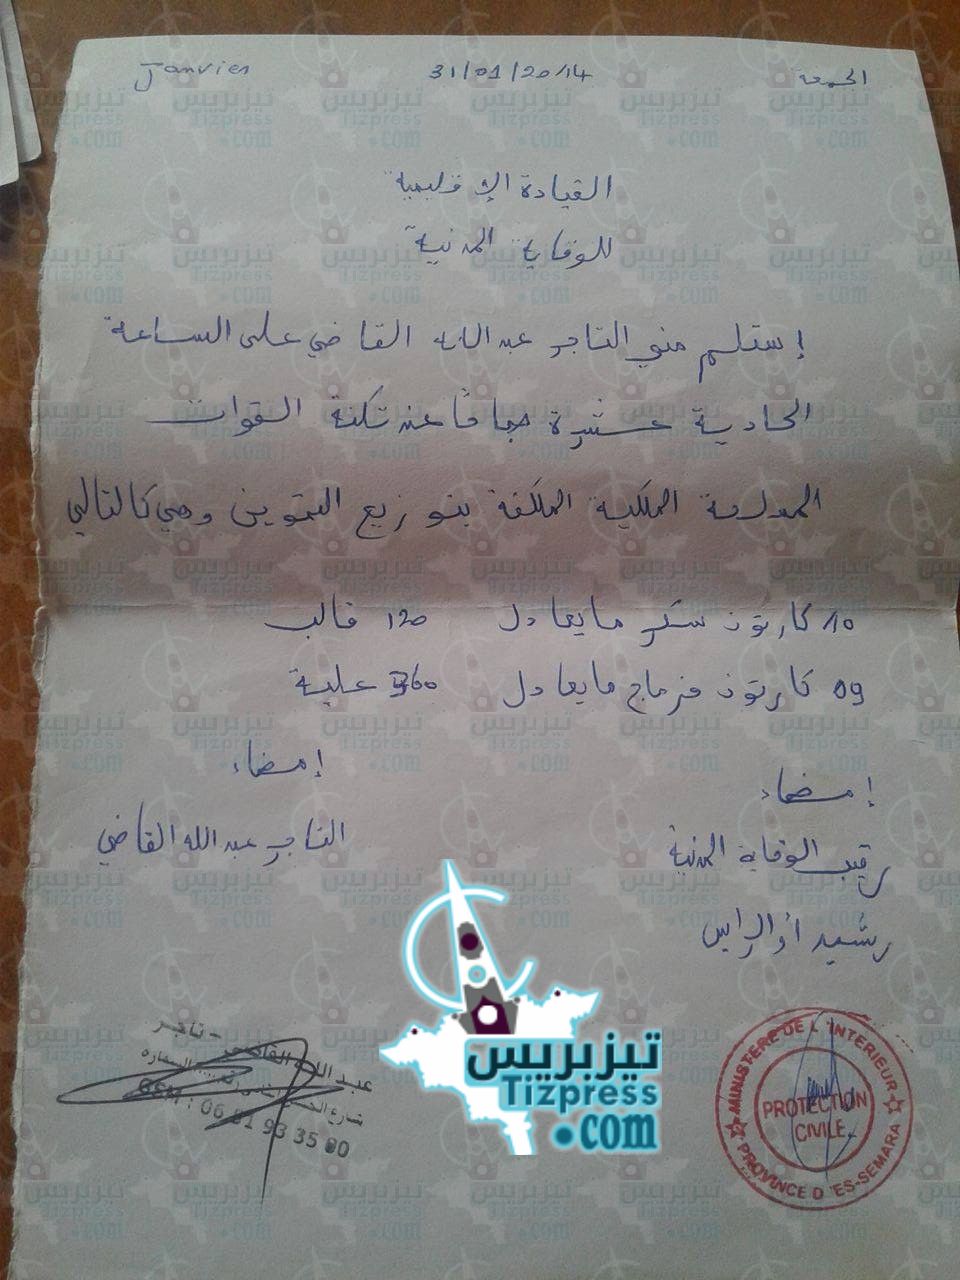 الجمعة 31/01/2014 Janvier
القيادة الإقليمية
للوقاية المدنية
إستلم منو التاجر عبد الله القاضي على الساعة
الحادية عشرة صباحًا عند تكنة القوات
الملكية المكلفة بتوزيع التموين وهي كالتالي
10 كارتون سكر ما يعادل 120 قالب
09 كارتون فرماج ما يعادل 360 علبة
إمضاء
إمضاء
رقيب الوقاية المدنية
التاجر عبد الله القاضي
رشيد
عبد الله القاضي - تاجر
شارع السمارة
GSM : 06 61 93 35
MINISTERE DE L'INTERIEUR
PROTECTION
CIVILE
PROVINCE D'ES-SEMARA
تيزبريس
Tizpress
.com